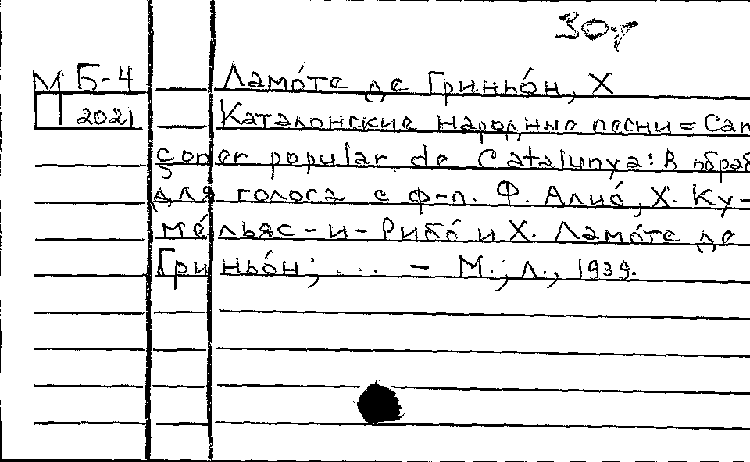 30г
М Б-4
П 2021
Ламо́те де Гриньо́н, Х
Каталонские народные песни = Can
çoner popular de Catalunya: В обраб
для голоса с ф-п. Ф. Алио́, Х. Ку-
ме́льяс-и-Рибо́ и Х. Ламо́те де
Гриньо́н; ... - М.; Л., 1939.